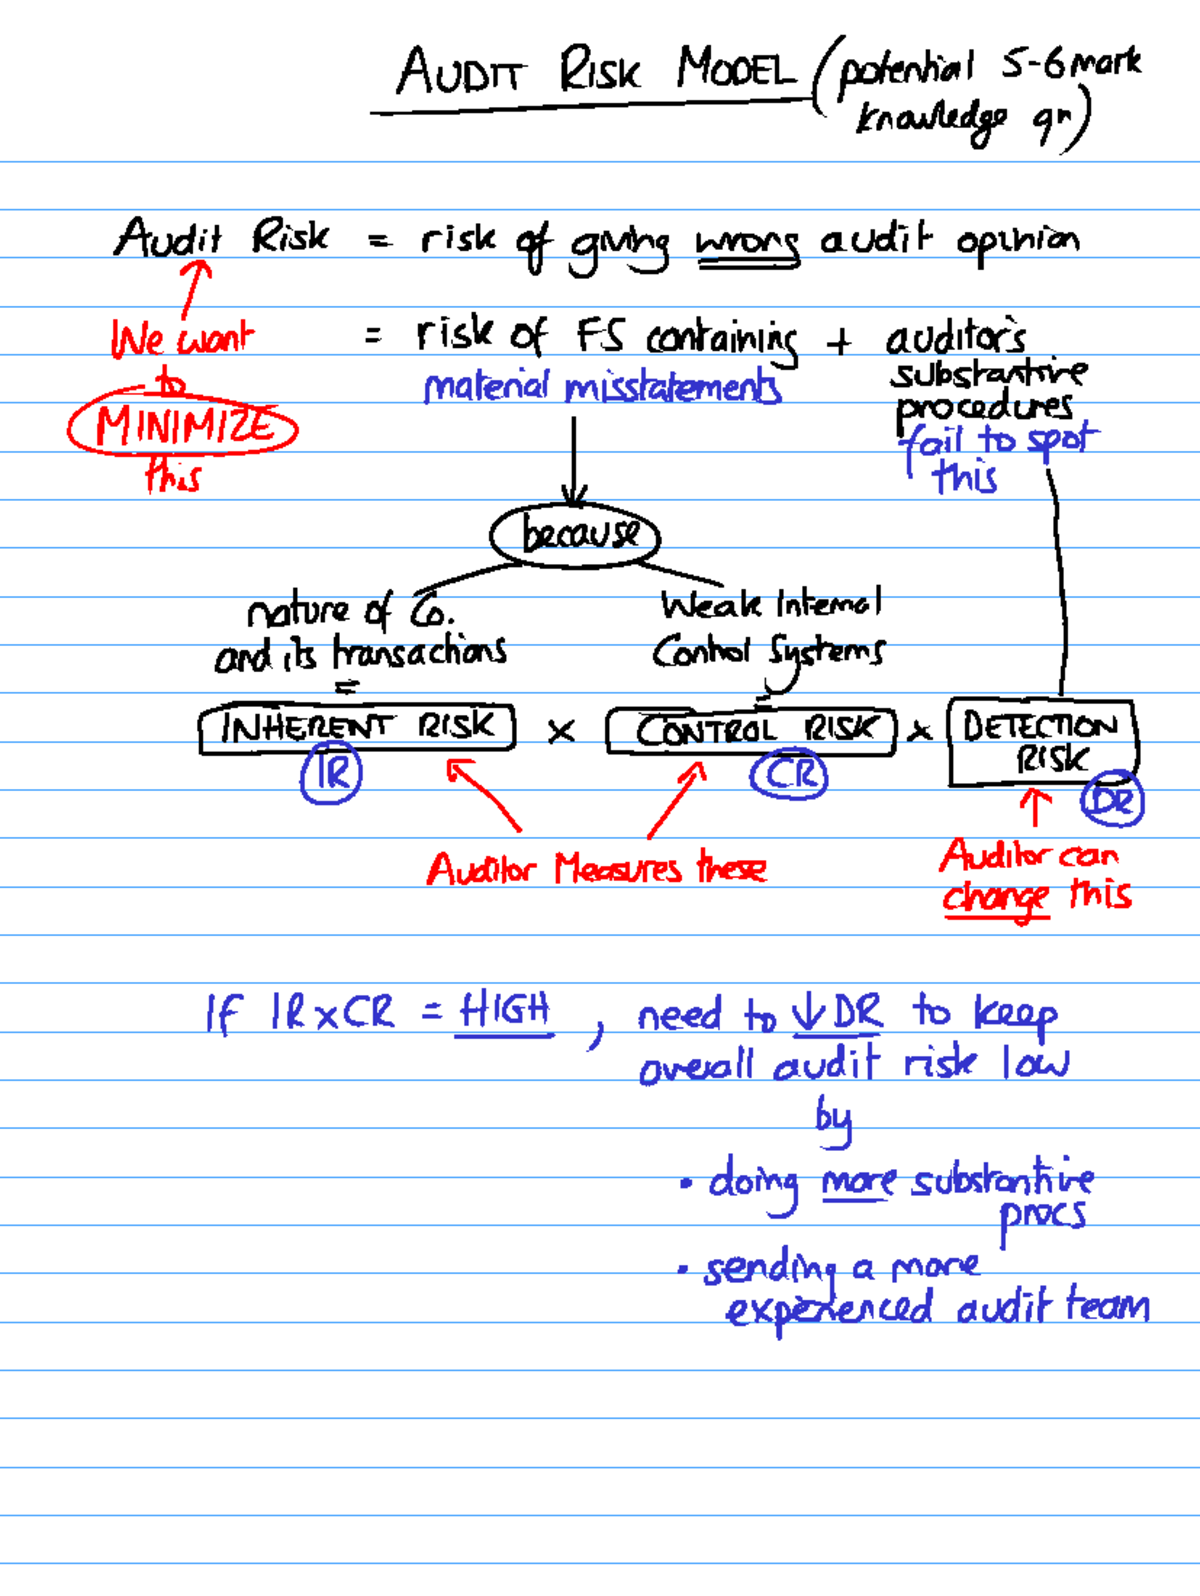 AUDIT RISK MODEL (potential 5-6 mark
knowledge qn)
Audit Risk = risk of giving wrong audit opinion
We want
to
MINIMIZE
this
= risk of FS containing + auditor's
material misstatements
substantive
procedures
fail to spot
this
because
nature of Co.
and its transactions
=
Weak Internal
Control Systems
=
INHERENT RISK × CONTROL RISK × DETECTION
RISK
IR
CR
DR
Auditor Measures these
Auditor can
change this
IF IR x CR = HIGH, need to ↓ DR to keep
overall audit risk low
by
• doing more substantive
procs
• sending a more
experienced audit team